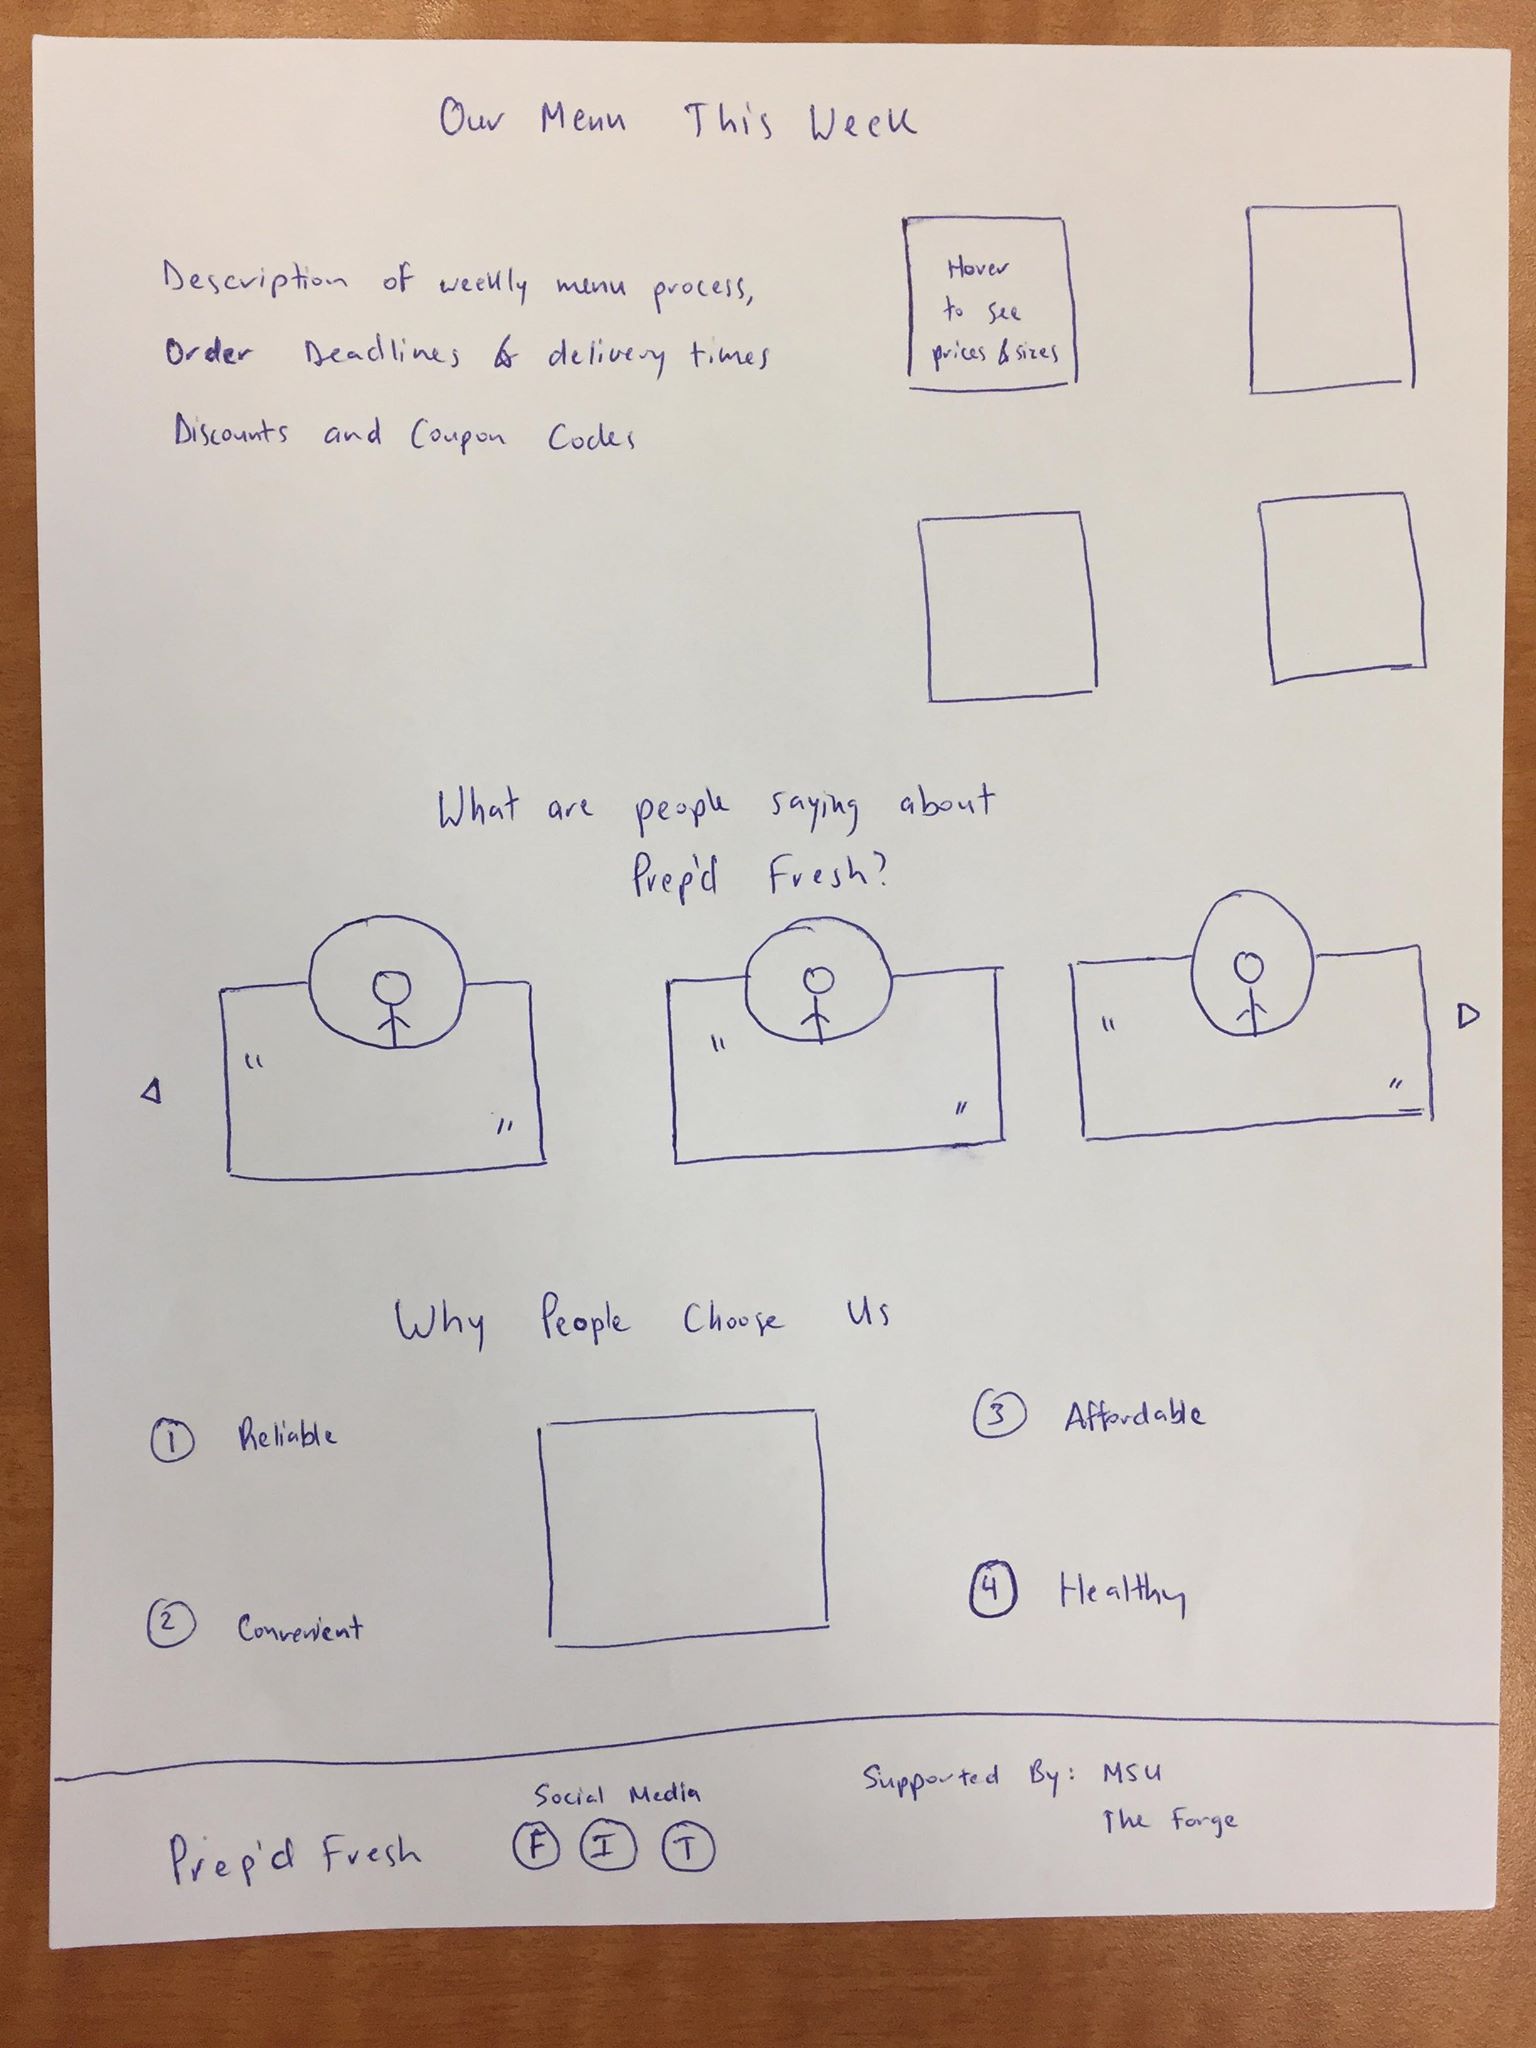 Our Menu This Week
Description of weekly menu process,
Order Deadlines & delivery times
Discounts and Coupon Codes
Hover
to see
prices & sizes
What are people saying about
Prep'd Fresh?
" "
" "
" "
Why People Choose Us
1 Reliable
2 Convenient
3 Affordable
4 Healthy
Prep'd Fresh
Social Media
F I T
Supported By: MSU
The Forge